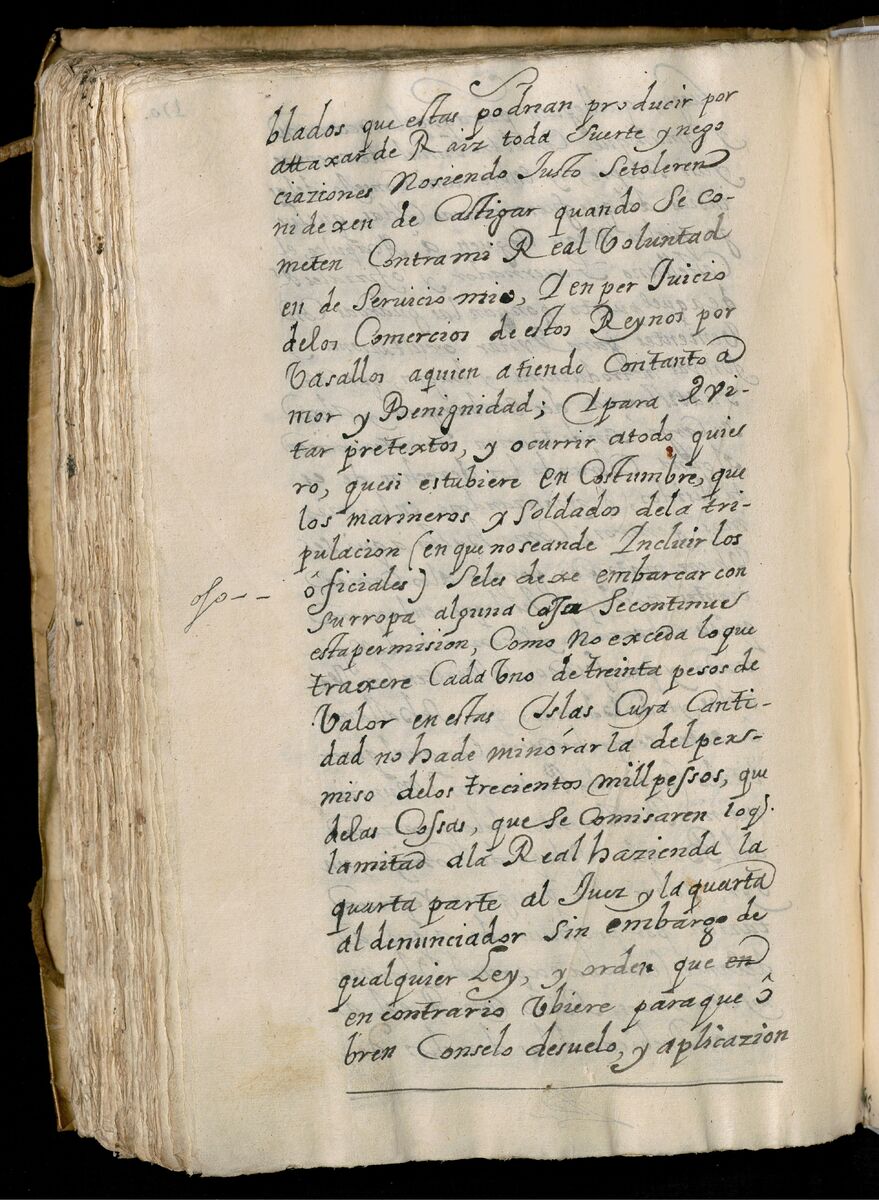 blados que estas podrian producir por
attaxar de Raiz toda Suerte y nego
ciaziones Nosiendo Justo Setoleren
ni dexen de Castigar quando Se co-
meten Contra mi Real Voluntad
en de Servicio mio, Y en per Juicio
delos Comercios de estos Reynos por
Vasallos aquien atiendo Contanto a
mor y Benignidad; Y para evi-
tar pretextos, y ocurrir atodo quie
ro, quesi estubiere en Costumbre, que
los marineros y Soldados dela tri-
pulacion (en que noseande Incluir los
ôficiales) Seles dexe embarcar con
Surropa alguna Cosa Secontinue
estapermision, Como No exceda loque
traxere Cada Uno de treinta pesos de
Valor en estas Islas Cuya Canti-
dad no hade minorar la del per-
miso delos trecientos mill pessos, que
delas Cossas, que Se Comisaren
la mitad ala Real hazienda la
quarta parte al Juez y la quarta
al denunciador Sin embargo de
qualquier Ley, y orden que en
en contrario Ubiere paraque ô
bren Conselo desuelo, y aplicazion